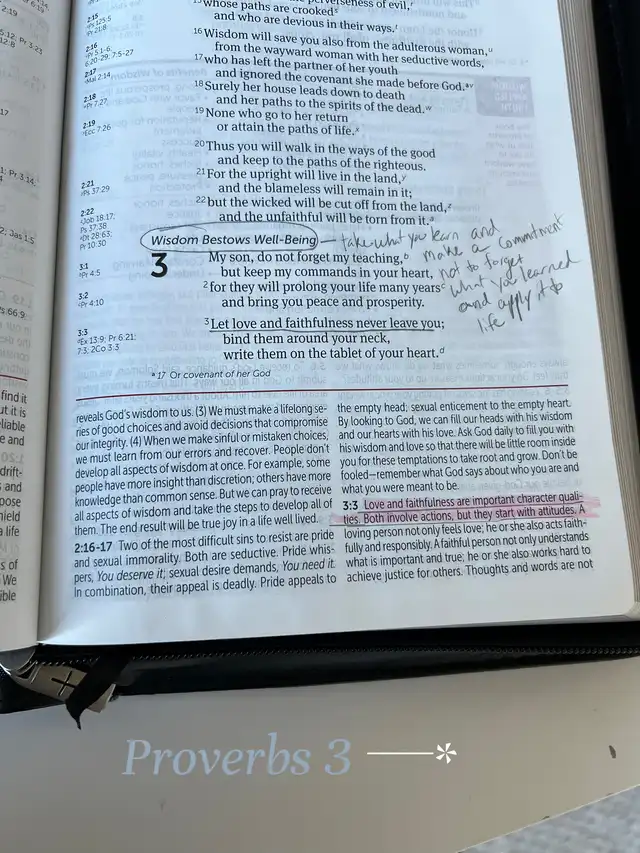 whose paths are crooked
and who are devious in their ways.ᶠ
16 Wisdom will save you also from the adulterous woman,ᵘ
from the wayward woman with her seductive words,
17 who has left the partner of her youth
and ignored the covenant she made before God.ᵃᵛ
18 Surely her house leads down to death
and her paths to the spirits of the dead.ʷ
19 None who go to her return
or attain the paths of life.ˣ
20 Thus you will walk in the ways of the good
and keep to the paths of the righteous.
21 For the upright will live in the land,ʸ
and the blameless will remain in it;
22 but the wicked will be cut off from the land,ᶻ
and the unfaithful will be torn from it.ᵃ
2:15
Ps 125:5
Pr 21:8
2:16
Pr 5:1-6,
6:20-29; 7:5-27
2:17
Mal 2:14
2:18
Pr 7:27
2:19
Ecc 7:26
2:21
Ps 37:29
2:22
Job 18:17;
Ps 37:38
Dt 28:63;
Pr 10:30
3:1
Pr 4:5
3:2
Pr 4:10
3:3
Ex 13:9; Pr 6:21;
7:3; 2Co 3:3
Wisdom Bestows Well-Being
take what you learn and
make a commitment
not to forget
what you learned
and apply it to
life
3 My son, do not forget my teaching,ᵇ
but keep my commands in your heart,
2 for they will prolong your life many yearsᶜ
and bring you peace and prosperity.
3 Let love and faithfulness never leave you;
bind them around your neck,
write them on the tablet of your heart.ᵈ
ᵃ 17 Or covenant of her God
reveals God's wisdom to us. (3) We must make a lifelong se-
ries of good choices and avoid decisions that compromise
our integrity. (4) When we make sinful or mistaken choices,
we must learn from our errors and recover. People don't
develop all aspects of wisdom at once. For example, some
people have more insight than discretion; others have more
knowledge than common sense. But we can pray to receive
all aspects of wisdom and take the steps to develop all of
them. The end result will be true joy in a life well lived.
2:16-17 Two of the most difficult sins to resist are pride
and sexual immorality. Both are seductive. Pride whis-
pers, You deserve it; sexual desire demands, You need it.
In combination, their appeal is deadly. Pride appeals to
the empty head; sexual enticement to the empty heart.
By looking to God, we can fill our heads with his wisdom
and our hearts with his love. Ask God daily to fill you with
his wisdom and love so that there will be little room inside
you for these temptations to take root and grow. Don't be
fooled—remember what God says about who you are and
what you were meant to be.
3:3 Love and faithfulness are important character quali-
ties. Both involve actions, but they start with attitudes. A
loving person not only feels love; he or she also acts faith-
fully and responsibly. A faithful person not only understands
what is important and true; he or she also works hard to
achieve justice for others. Thoughts and words are not
Proverbs 3